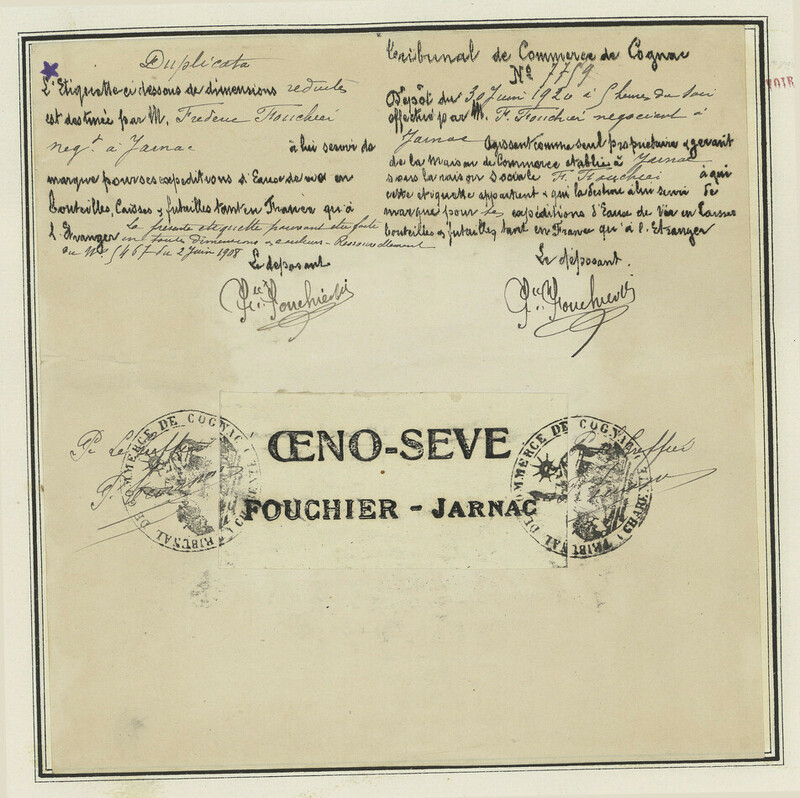 Duplicata
L'Etiquette ci dessous de dimensions reduites
est destinée par M. Frederic Fouchier
neg.t à Jarnac à lui servir de
marque pour ses expeditions d'Eaux de vie en
bouteilles, Caisses & futailles tant en France qu'à
l'Etranger la presente etiquette pouvant etre faite
en toute dimensions & couleurs - Renouvellement
du No 5467 du 2 Juin 1908
Le deposant
Fic Fouchier
Tribunal de Commerce de Cognac
No 7759
Dépôt du 30 Juin 1920 à 5 heures du soir
effectué par M. F. Fouchier negociant à
Jarnac agissant comme seul propriétaire & gerant
de la Maison de Commerce etablie à Jarnac
sous la raison sociale F. Fouchier à qui
cette etiquette appartient & qui la destine à lui servir de
marque pour ses expéditions d'Eaux de Vie en Caisses
bouteilles & futailles, tant en France qu'à l'Etranger
Le déposant.
Fic Fouchier
Pr Le Greffier
TRIBUNAL DE COMMERCE DE COGNAC (CHARENTE)
ŒNO-SEVE
FOUCHIER - JARNAC
Pr Le Greffier
TRIBUNAL DE COMMERCE DE COGNAC (CHARENTE)